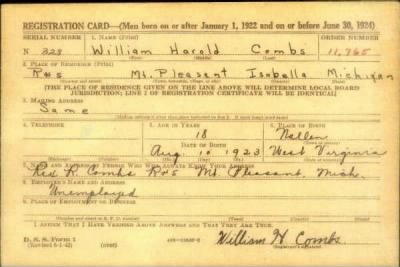 REGISTRATION CARD—(Men born on or after January 1, 1922 and on or before June 30, 1924)
SERIAL NUMBER 1. NAME (Print) ORDER NUMBER
N 328 William Harold Combs 11,765
(First) (Middle) (Last)
2. PLACE OF RESIDENCE (Print)
R#5 Mt. Pleasant Isabella Michigan
(THE PLACE OF RESIDENCE GIVEN ON THE LINE ABOVE WILL DETERMINE LOCAL BOARD
JURISDICTION; LINE 2 OF REGISTRATION CERTIFICATE WILL BE IDENTICAL)
3. MAILING ADDRESS
Same
4. TELEPHONE 5. AGE IN YEARS 6. PLACE OF BIRTH
18
DATE OF BIRTH
Aug. 10 1923 West Virginia
7. NAME AND ADDRESS OF PERSON WHO WILL ALWAYS KNOW YOUR ADDRESS
R. Combs R#5 Mt. Pleasant, Mich.
8. EMPLOYER'S NAME AND ADDRESS
Unemployed
9. PLACE OF EMPLOYMENT OR BUSINESS
I AFFIRM THAT I HAVE VERIFIED ABOVE ANSWERS AND THAT THEY ARE TRUE.
D. S. S. Form 1
(Revised 6-1-42) (over)
William H Combs.
(Registrant's signature)